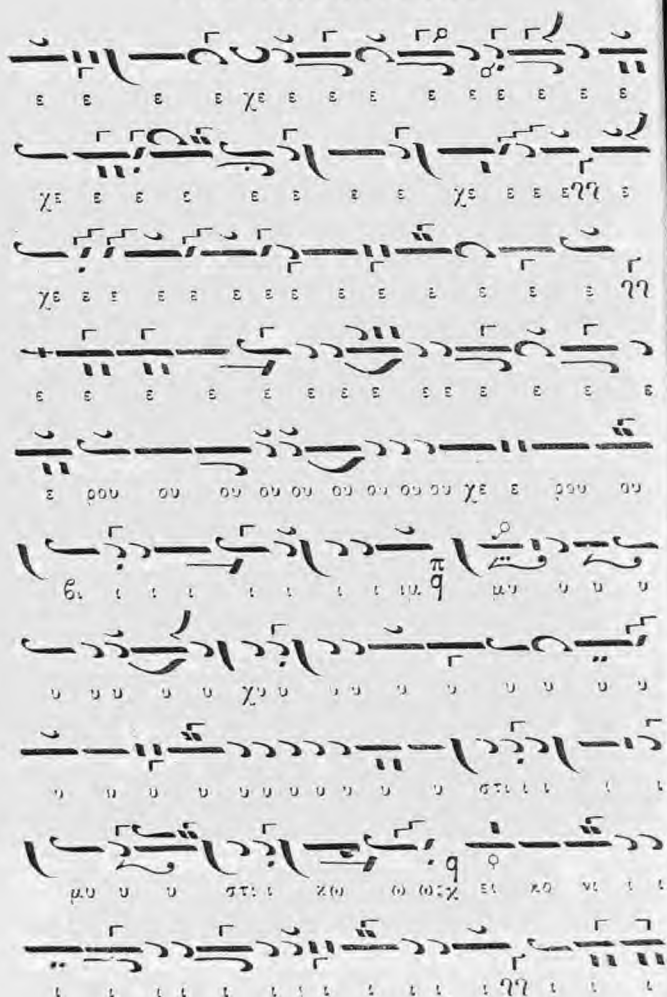 ε ε ε ε χε ε ε ε ε ε ε ε ε ε
χε ε ε ε ε ε ε ε χε ε ε εγγ ε
χε ε ε ε ε ε ε ε ε ε ε ε ε ε γγ
ε ε ε ε ε ε ε ε ε ε ε ε ε ε ε
ε ρου ου ου ου ου ου ου ου ου χε ε ρου ου
βι ι ι ι ι ι ι ι ιμ π q μυ υ υ υ
υ υ υ υ υ χυ υ υ υ υ υ υ υ υ υ
υ υ υ υ υ υ υ υ υ υ υ στι ι ι ι ι
μυ υ υ στι ι κω ω ω q ει κο νι ι ι
ι ι ι ι ι ι ι ι ι ι ι ι γγ ι ι ι